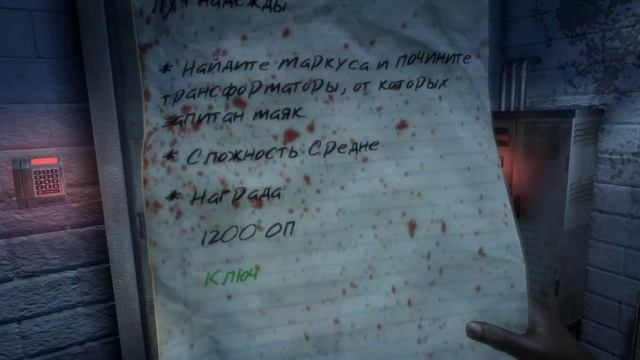 Луч надежды
* Найдите маркуса и почините
трансформаторы, от которых
запитан маяк
* Сложность Средне
* Награда
1200 ОП
Ключ